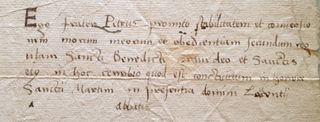 Ego frater Petrus promitto stabilitatem et conversio
nem morum meorum et obedientiam secundum reg
ulam Sancti Benedicti coram deo et Sanctis
eius in hoc cenobio quod est constructum in honore
Sancti Martini in presentia domini
abbatis